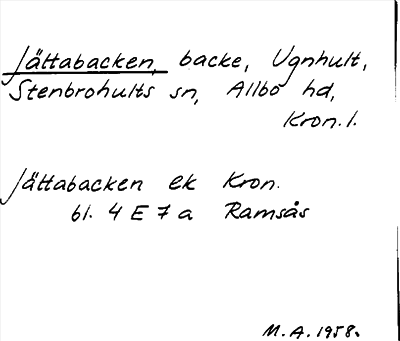 Jättabacken, backe, Ugnhult,
Stenbrohults sn, Allbo hd,
Kron. l.
Jättabacken ek Kron.
bl. 4 E 7 a Ramsås
M.A. 1958.